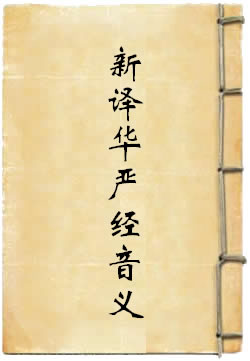 新译华严经音义